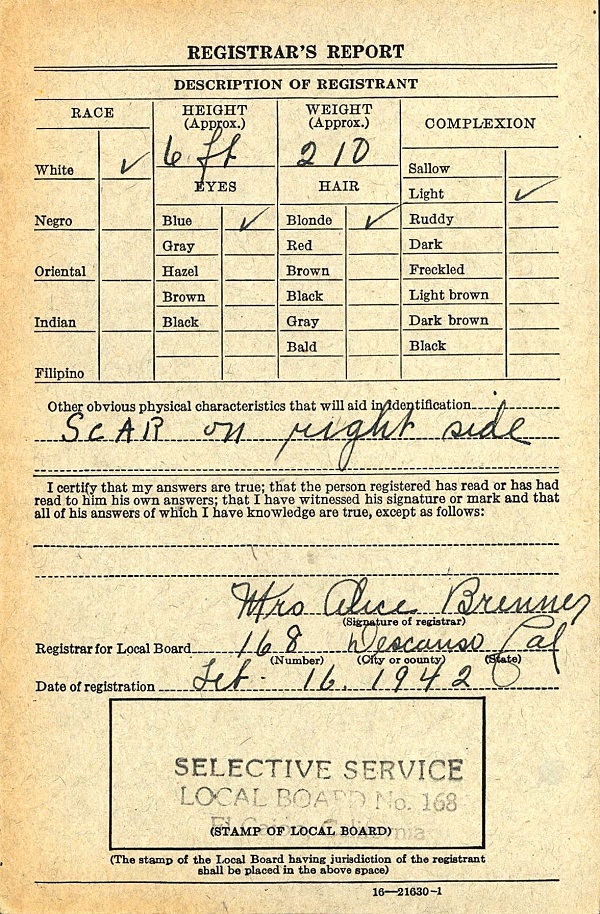 REGISTRAR'S REPORT
DESCRIPTION OF REGISTRANT
RACE
HEIGHT
(Approx.)
WEIGHT
(Approx.)
COMPLEXION
6 ft
210
White ✓
EYES
HAIR
Sallow
Light ✓
Negro
Blue ✓
Blonde ✓
Ruddy
Gray
Red
Dark
Oriental
Hazel
Brown
Freckled
Brown
Black
Light brown
Indian
Black
Gray
Dark brown
Bald
Black
Filipino
Other obvious physical characteristics that will aid in identification
SCAR on right side
I certify that my answers are true; that the person registered has read or has had
read to him his own answers; that I have witnessed his signature or mark and that
all of his answers of which I have knowledge are true, except as follows:
Mrs Alice Brenner
(Signature of registrar)
Registrar for Local Board 168 Descanso Cal
(Number) (City or county) (State)
Date of registration Feb. 16. 1942
SELECTIVE SERVICE
LOCAL BOARD No. 168
El Cajon, California
(STAMP OF LOCAL BOARD)
(The stamp of the Local Board having jurisdiction of the registrant
shall be placed in the above space)
16—21630-1